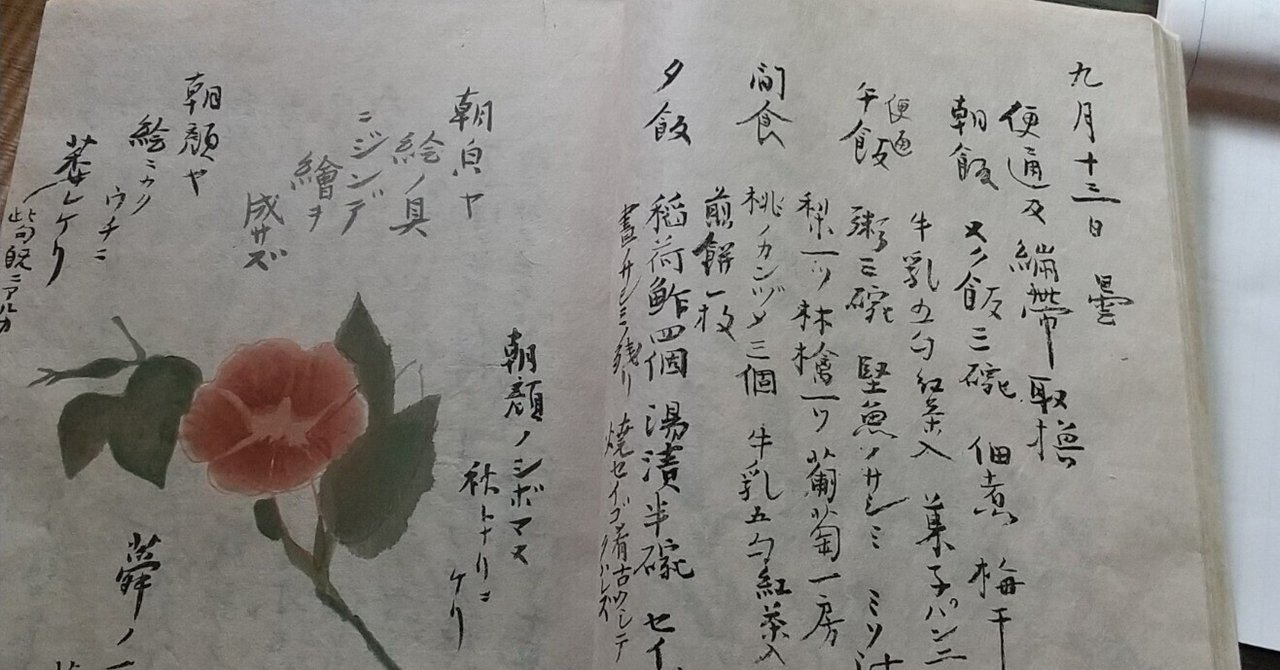 九月十三日 曇
便通及繃帯取換
朝飯 ヌク飯三碗 佃煮 梅干
牛乳五勺紅茶入 菓子パン二
便通
午飯 粥三碗 堅魚ノサシミ ミソ汁
梨一ツ 林檎一ツ 葡萄一房
間食 桃ノカンヅメ三個 牛乳五勺紅茶入
煎餅一枚
夕飯 稲荷鮓四個 湯漬半碗 セイ
昼サシミノ残リ 焼セイゴ肴古クシテクハレズ
朝顔ノシボマヌ
秋トナリニ
ケリ
朝皃ヤ
絵ノ具
ニジンデ
繪ヲ
成サズ
朝顔ヤ
絵ニカク
ウチニ
萎レケリ
此句既ニアルカ
蕣ノ